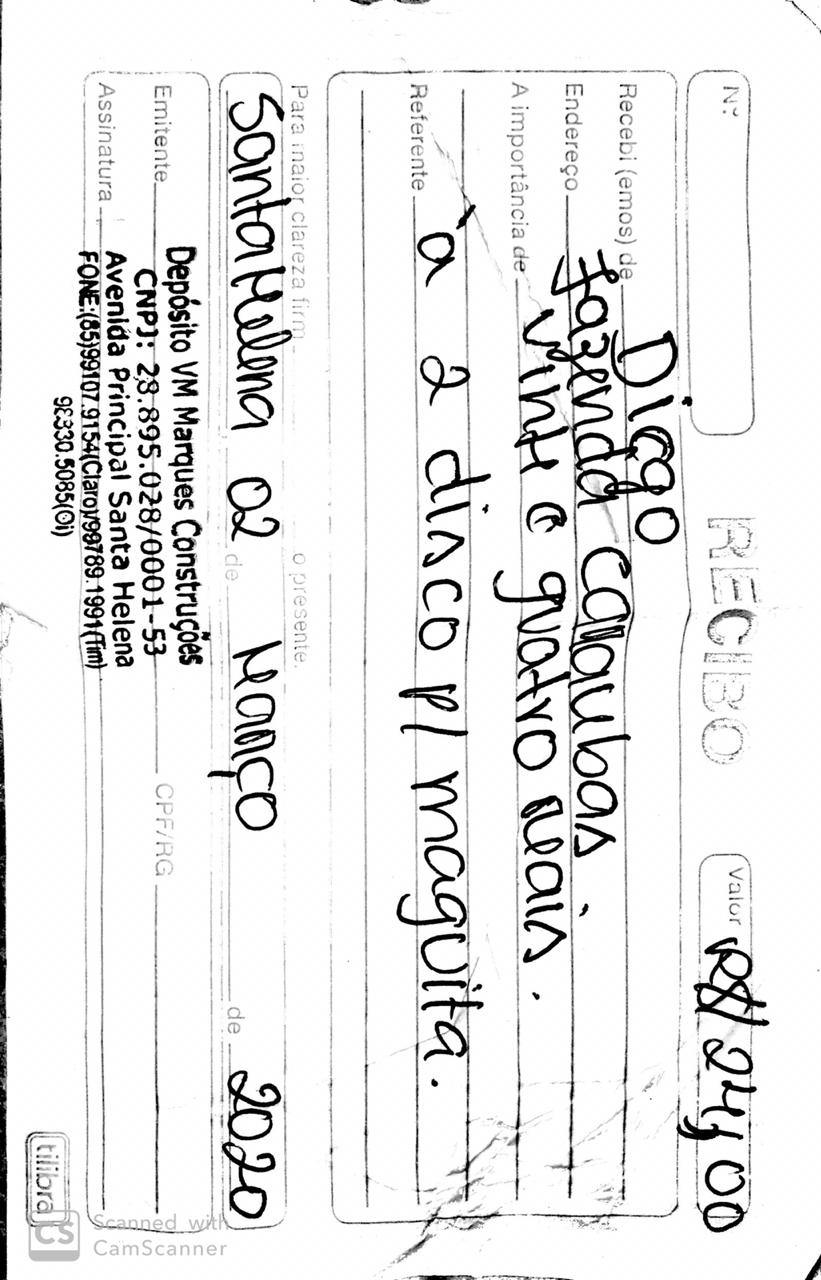 Nº
RECIBO
Valor R$ 24,00
Recebi (emos) de Diego
Endereço fazenda carnaubas
A importância de vinte e quatro reais.
Referente à 2 disco p/ maquita.
Para maior clareza firm o presente.
Santa Helena 02 de Março de 2020
Emitente CPF/RG
Assinatura
Depósito VM Marques Construções
CNPJ: 28.895.028/0001-53
Avenida Principal Santa Helena
FONE:(85)99107.9154(Claro)/99789.1991(Tim)
tilibra
CS Scanned with
CamScanner